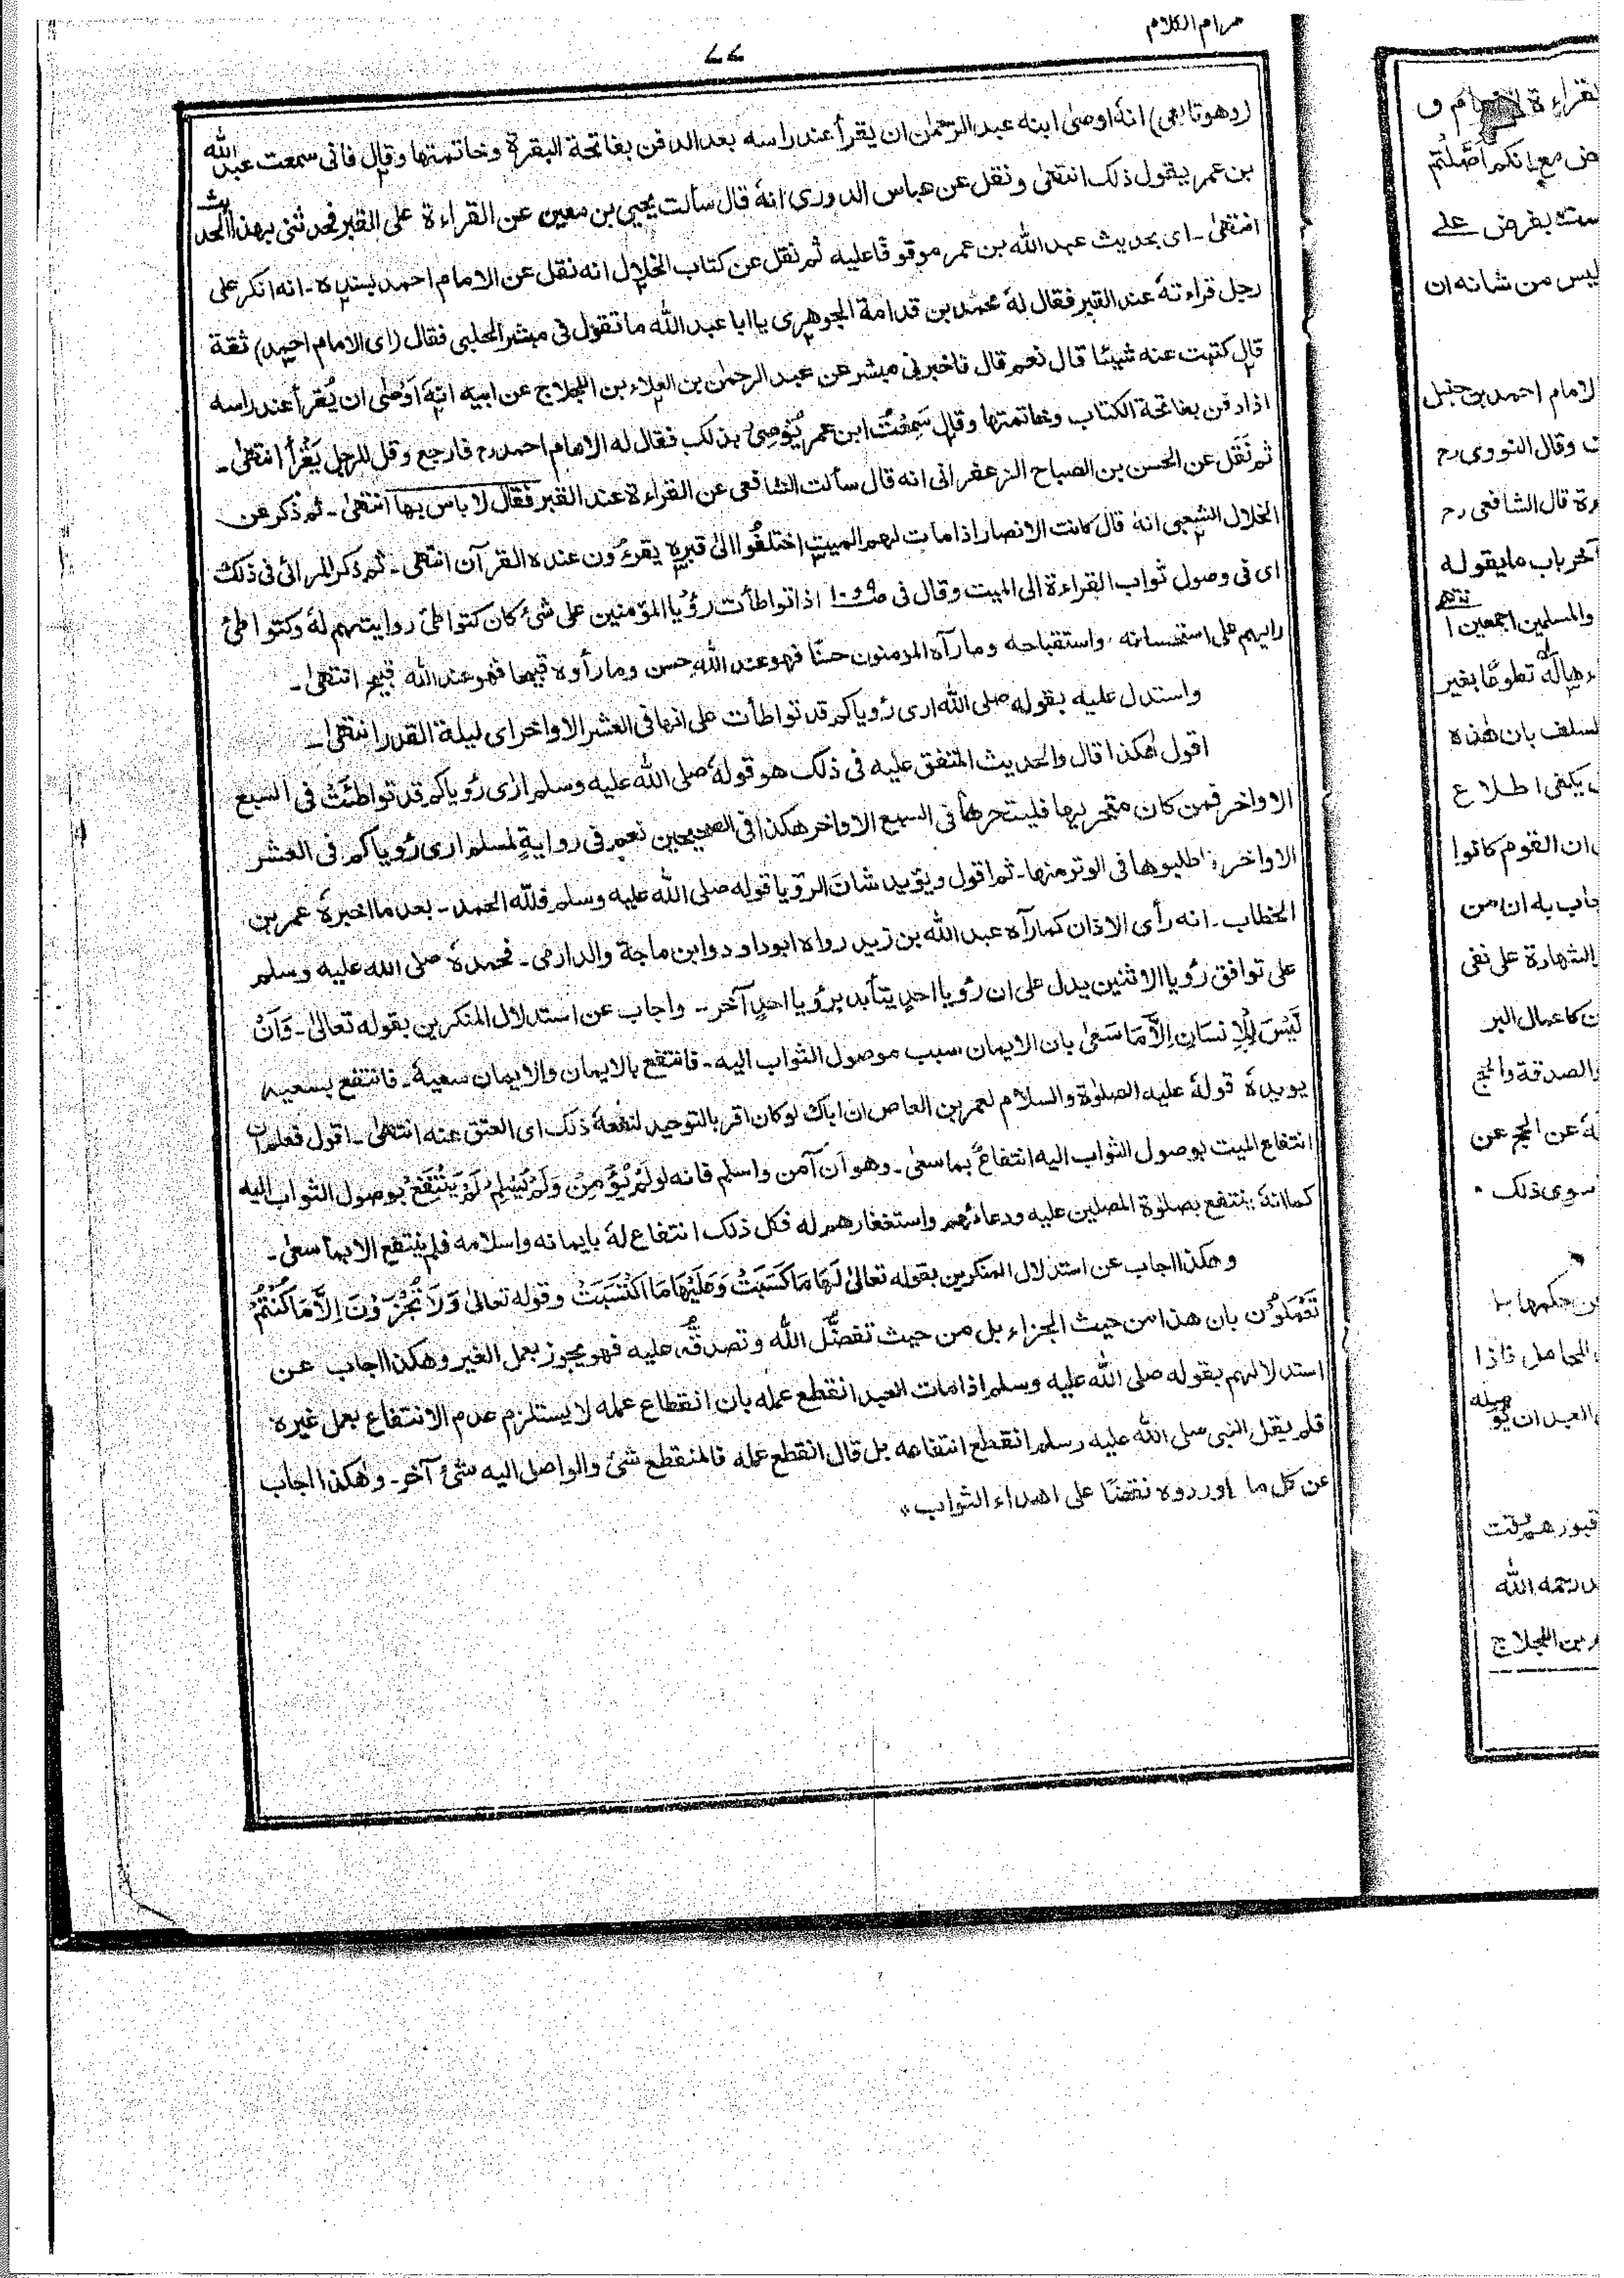 مرام الكلام
٧٧
(وهو تابعى) انهٗ اوصٰى ابنه عبد الرحمٰن ان يقرأ عند راسه بعد الدفن بفاتحة البقرة وخاتمتها وقال فانى سمعت عبد الله
بن عمر يقول ذلك انتهىٰ ونقل عن عباس الدورى انهٗ قال سألت يحيى بن معين عن القراءة على القبر فحدثنى بهذا الحديث
انتهىٰ ۔ اى بحديث عبد الله بن عمر موقوفا عليه ثم نقل عن كتاب الخلال انه نقل عن الامام احمد بسنده ۔ انه انكر على
رجل قراءتهٗ عند القبر فقال لهٗ محمد بن قدامة الجوهرى يا ابا عبد الله ما تقول فى مبشر الحلبى فقال (اى الامام احمد) ثقة
قال كتبت عنه شيئا قال نعم قال فاخبرنى مبشر عن عبد الرحمٰن بن العلاء بن اللجلاج عن ابيه انهٗ اَوْصٰى ان يُقرأ عند راسه
اذا دفن بفاتحة الكتاب وخاتمتها وقال سَمِعْتُ ابن عمر يُوْصِىْ بذلك فقال له الامام احمد رح فارجع وقل للرجل يَقْرَأ انتهىٰ ۔
ثم نَقَل عن الحسن بن الصباح الزعفرانى انه قال سألت الشافعى عن القراءة عند القبر فقال لا باس بها انتهىٰ ۔ ثم ذكر عن
الخلال الشعبى انهٗ قال كانت الانصار اذا مات لهم الميت اختلفُوا الىٰ قبرهٖ يقرءُون عنده القرآن انتهى ۔ ثم ذكر المرائى فى ذلك
اى فى وصول ثواب القراءة الى الميت وقال فى صـ٩ و ١٠ اذا تواطأت رؤيا المؤمنين على شئ كان كتواطئ روايتهم لهٗ وكتواطئ
رايهم على استحسانه واستقباحه وما رآه المؤمنون حسنًا فهو عند الله حسن وما رأوه قبيحا فهو عند الله قبيح انتهىٰ ۔
واستدل عليه بقوله صلى الله ارى رؤياكم قد تواطأت على انها فى العشر الاواخر اى ليلة القدر انتهىٰ ۔
اقول هٰكذا قال والحديث المتفق عليه فى ذلك هو قولهٗ صلى الله عليه وسلم ارٰى رُؤياكم قد تواطئَتْ فى السبع
الاواخر فمن كان متحريها فليتحرها فى السبع الاواخر هكذا فى الصحيحين نعم فى روايةٍ لمسلم ارى رُؤياكم فى العشر
الاواخر فاطلبوها فى الوتر منها ۔ ثم اقول ويؤيد شان الرؤيا قوله صلى الله عليه وسلم فلله الحمد ۔ بعد ما اخبرهٗ عمر بن
الخطاب ۔ انه رأى الاذان كما رآه عبد الله بن زيد رواه ابوداود وابن ماجة والدارمى ۔ فحمدهٗ صلى الله عليه وسلم
على توافق رؤيا الاثنين يدل على ان رؤيا احدٍ يتأيد برؤيا احدٍ آخر ۔ واجاب عن استدلال المنكرين بقوله تعالىٰ ۔ وَاَنْ
لَّيْسَ لِلْاِنْسَانِ اِلَّا مَا سَعٰى بان الايمان سبب موصول الثواب اليه ۔ فانتفع بالايمان والايمان سعيهٗ ۔ فانتفع بسعيه
يويدهٗ قولهٗ عليه الصلٰوة والسلام لعمر بن العاص ان اباك لو كان اقر بالتوحيد لنفعهٗ ذلك اى العتق عنه انتهىٰ ۔ اقول فعلم ان
انتفاع الميت بوصول الثواب اليه انتفاعٌ بما سعىٰ ۔ وهو ان آمن واسلم فانه لو لَمْ يُؤْمِنْ وَلَمْ يُسْلِمْ لَمْ يَنْتَفِعْ بوصول الثواب اليه
كما انهٗ ينتفع بصلٰوة المصلين عليه ودعائهم واستغفارهم له فكل ذلك انتفاع لهٗ بايمانه واسلامه فلم ينتفع الا بما سعىٰ ۔
وهكذا اجاب عن استدلال المنكرين بقوله تعالىٰ لَهَا مَا كَسَبَتْ وَعَلَيْهَا مَا اكْتَسَبَتْ وقوله تعالىٰ وَلَا تُجْزَوْنَ اِلَّا مَا كُنْتُمْ
تَعْمَلُوْن بان هذا من حيث الجزاء بل من حيث تفضُّل الله وتصدقُّه عليه فهو يجوز بعمل الغير وهكذا اجاب عن
استدلالهم بقوله صلى الله عليه وسلم اذا مات العبد انقطع عمله بان انقطاع عمله لا يستلزم عدم الانتفاع بعمل غيره
فلم يقل النبى صلى الله عليه وسلم انقطع انتفاعه بل قال انقطع عمله فالمنقطع شئ والواصل اليه شئ آخر ۔ وهٰكذا اجاب
عن كل ما اوردوه نقضًا على اهداء الثواب ۔
ليس من شانه ان
الامام احمد بن حنبل
وقال النووى رح
قال الشافعى رح
آخر باب ما يقوله
والمسلمين اجمعين
تطوعًا بغير
السلف بان هٰذه
يكفى اطلاع
ان القوم كانوا
الشهادة على نفى
كاعمال البر
والصدقة والحج
عن الحج عن
سوى ذلك ۔
رحمه الله
بن اللجلاج